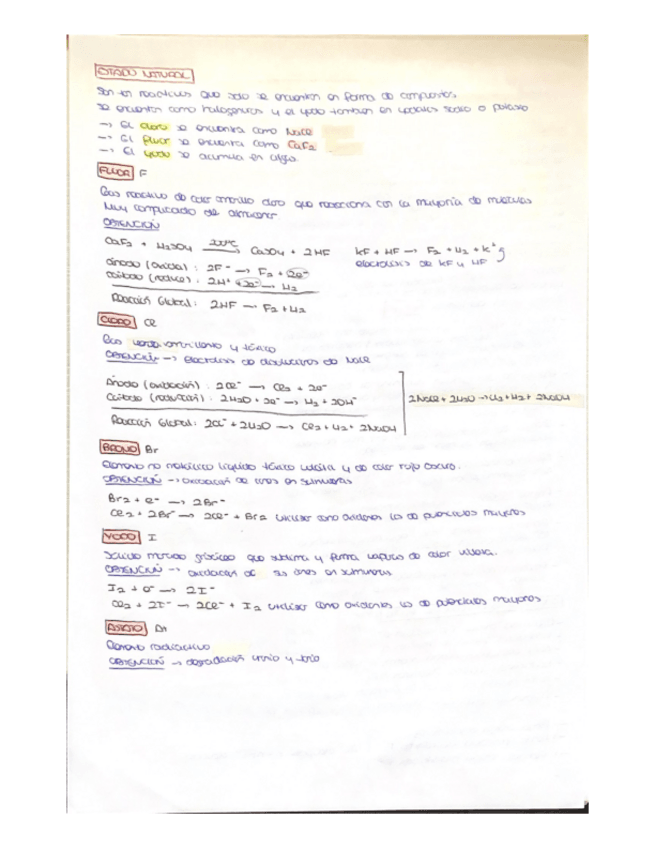 ESTADO NATURAL
Son tan reactivos que solo se encuentran en forma de compuestos.
Se encuentran como halogenuros y el yodo también en yodatos sodio o potasio
→ El cloro se encuentra como NaCl
→ El fluor se encuentra como CaF2
→ El yodo se acumula en algas.
FLUOR F
Gas reactivo de color amarillo claro que reacciona con la mayoría de
Muy complicado de almacenar.
OBTENCIÓN
CaF2 + H2SO4 200ºC → CaSO4 + 2HF KF + HF → F2 + H2 + K+
Ánodo (oxida): 2F- → F2 + 2e- electrólisis de KF y HF
Cátodo (reduce): 2H+ + 2e- → H2
Reacción Global: 2HF → F2 + H2
CLORO Cl
Gas verde amarillento y tóxico
OBTENCIÓN → Electrólisis de disoluciones de NaCl
Ánodo (oxidación): 2Cl- → Cl2 + 2e-
Cátodo (reducción): 2H2O + 2e- → H2 + 2OH- 2NaCl + 2H2O → Cl2 + H2 + 2NaOH
Reacción Global: 2Cl- + 2H2O → Cl2 + H2 + 2NaOH
BROMO Br
Elemento no metálico líquido tóxico volátil y de color rojo oscuro.
OBTENCIÓN → oxidación de iones en salmueras
Br2 + e- → 2Br-
Cl2 + 2Br- → 2Cl- + Br2 utilizar como oxidantes los de potenciales mayores
YODO I
Sólido grisáceo que sublima y forma vapores de color violeta.
OBTENCIÓN → oxidación de sus iones en salmueras
I2 + e- → 2I-
Cl2 + 2I- → 2Cl- + I2 utilizar como oxidantes los de potenciales mayores
ASTATO At
Elemento radiactivo
OBTENCIÓN → degradación uranio y torio